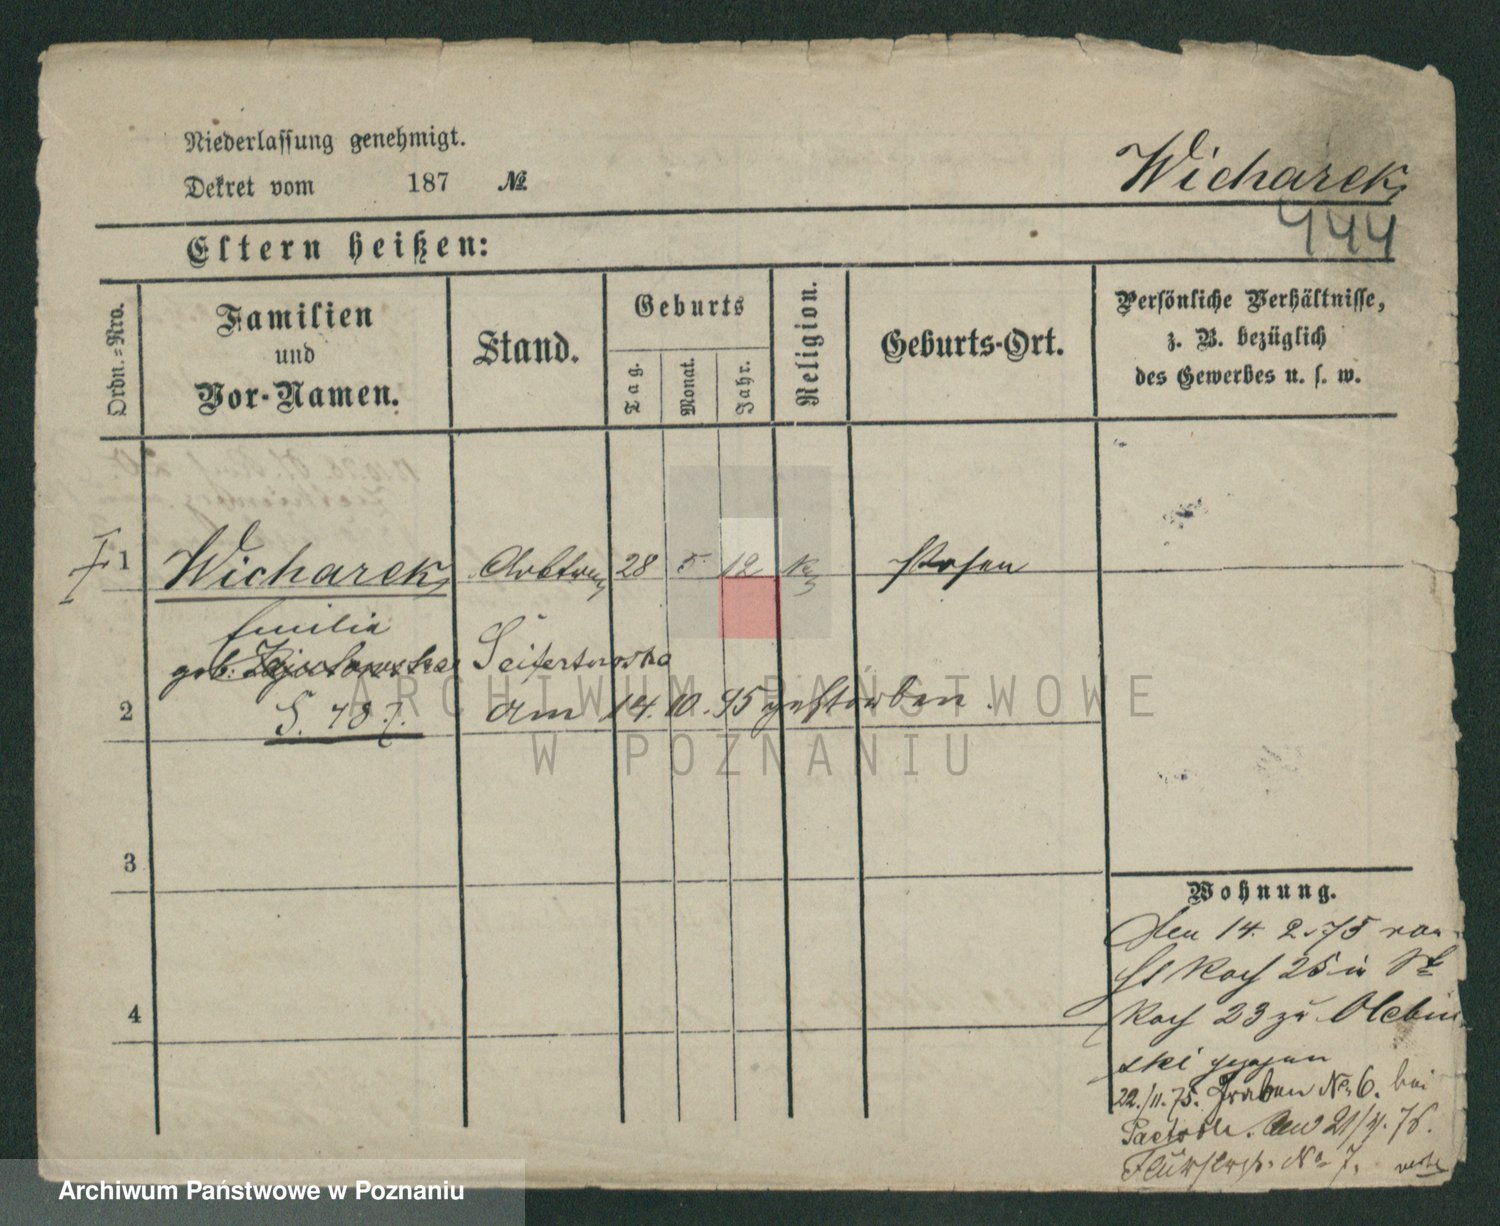 Niederlassung genehmigt.
Dekret vom 187 №
Wicharek,
444
Eltern heißen:
Ordn.-Nro.
Familien
und
Vor-Namen.
Stand.
Geburts
Tag.
Monat.
Jahr.
Religion.
Geburts-Ort.
Persönliche Verhältnisse,
z. B. bezüglich
des Gewerbes u. s. w.
1 Wicharek, 28 5 12 k Posen
Emilia
geb. Seifertowska
2 am 14. 10. 95 gestorben.
3
4
Wohnung.
Den 14. 2. 75 von
St Roch 25 in St
Roch 23 zu Olebin
ski gezogen
22./11. 75. Graben No 6. bei
den 21/4. 76.
No 7.
ARCHIWUM PAŃSTWOWE
W POZNANIU
Archiwum Państwowe w Poznaniu